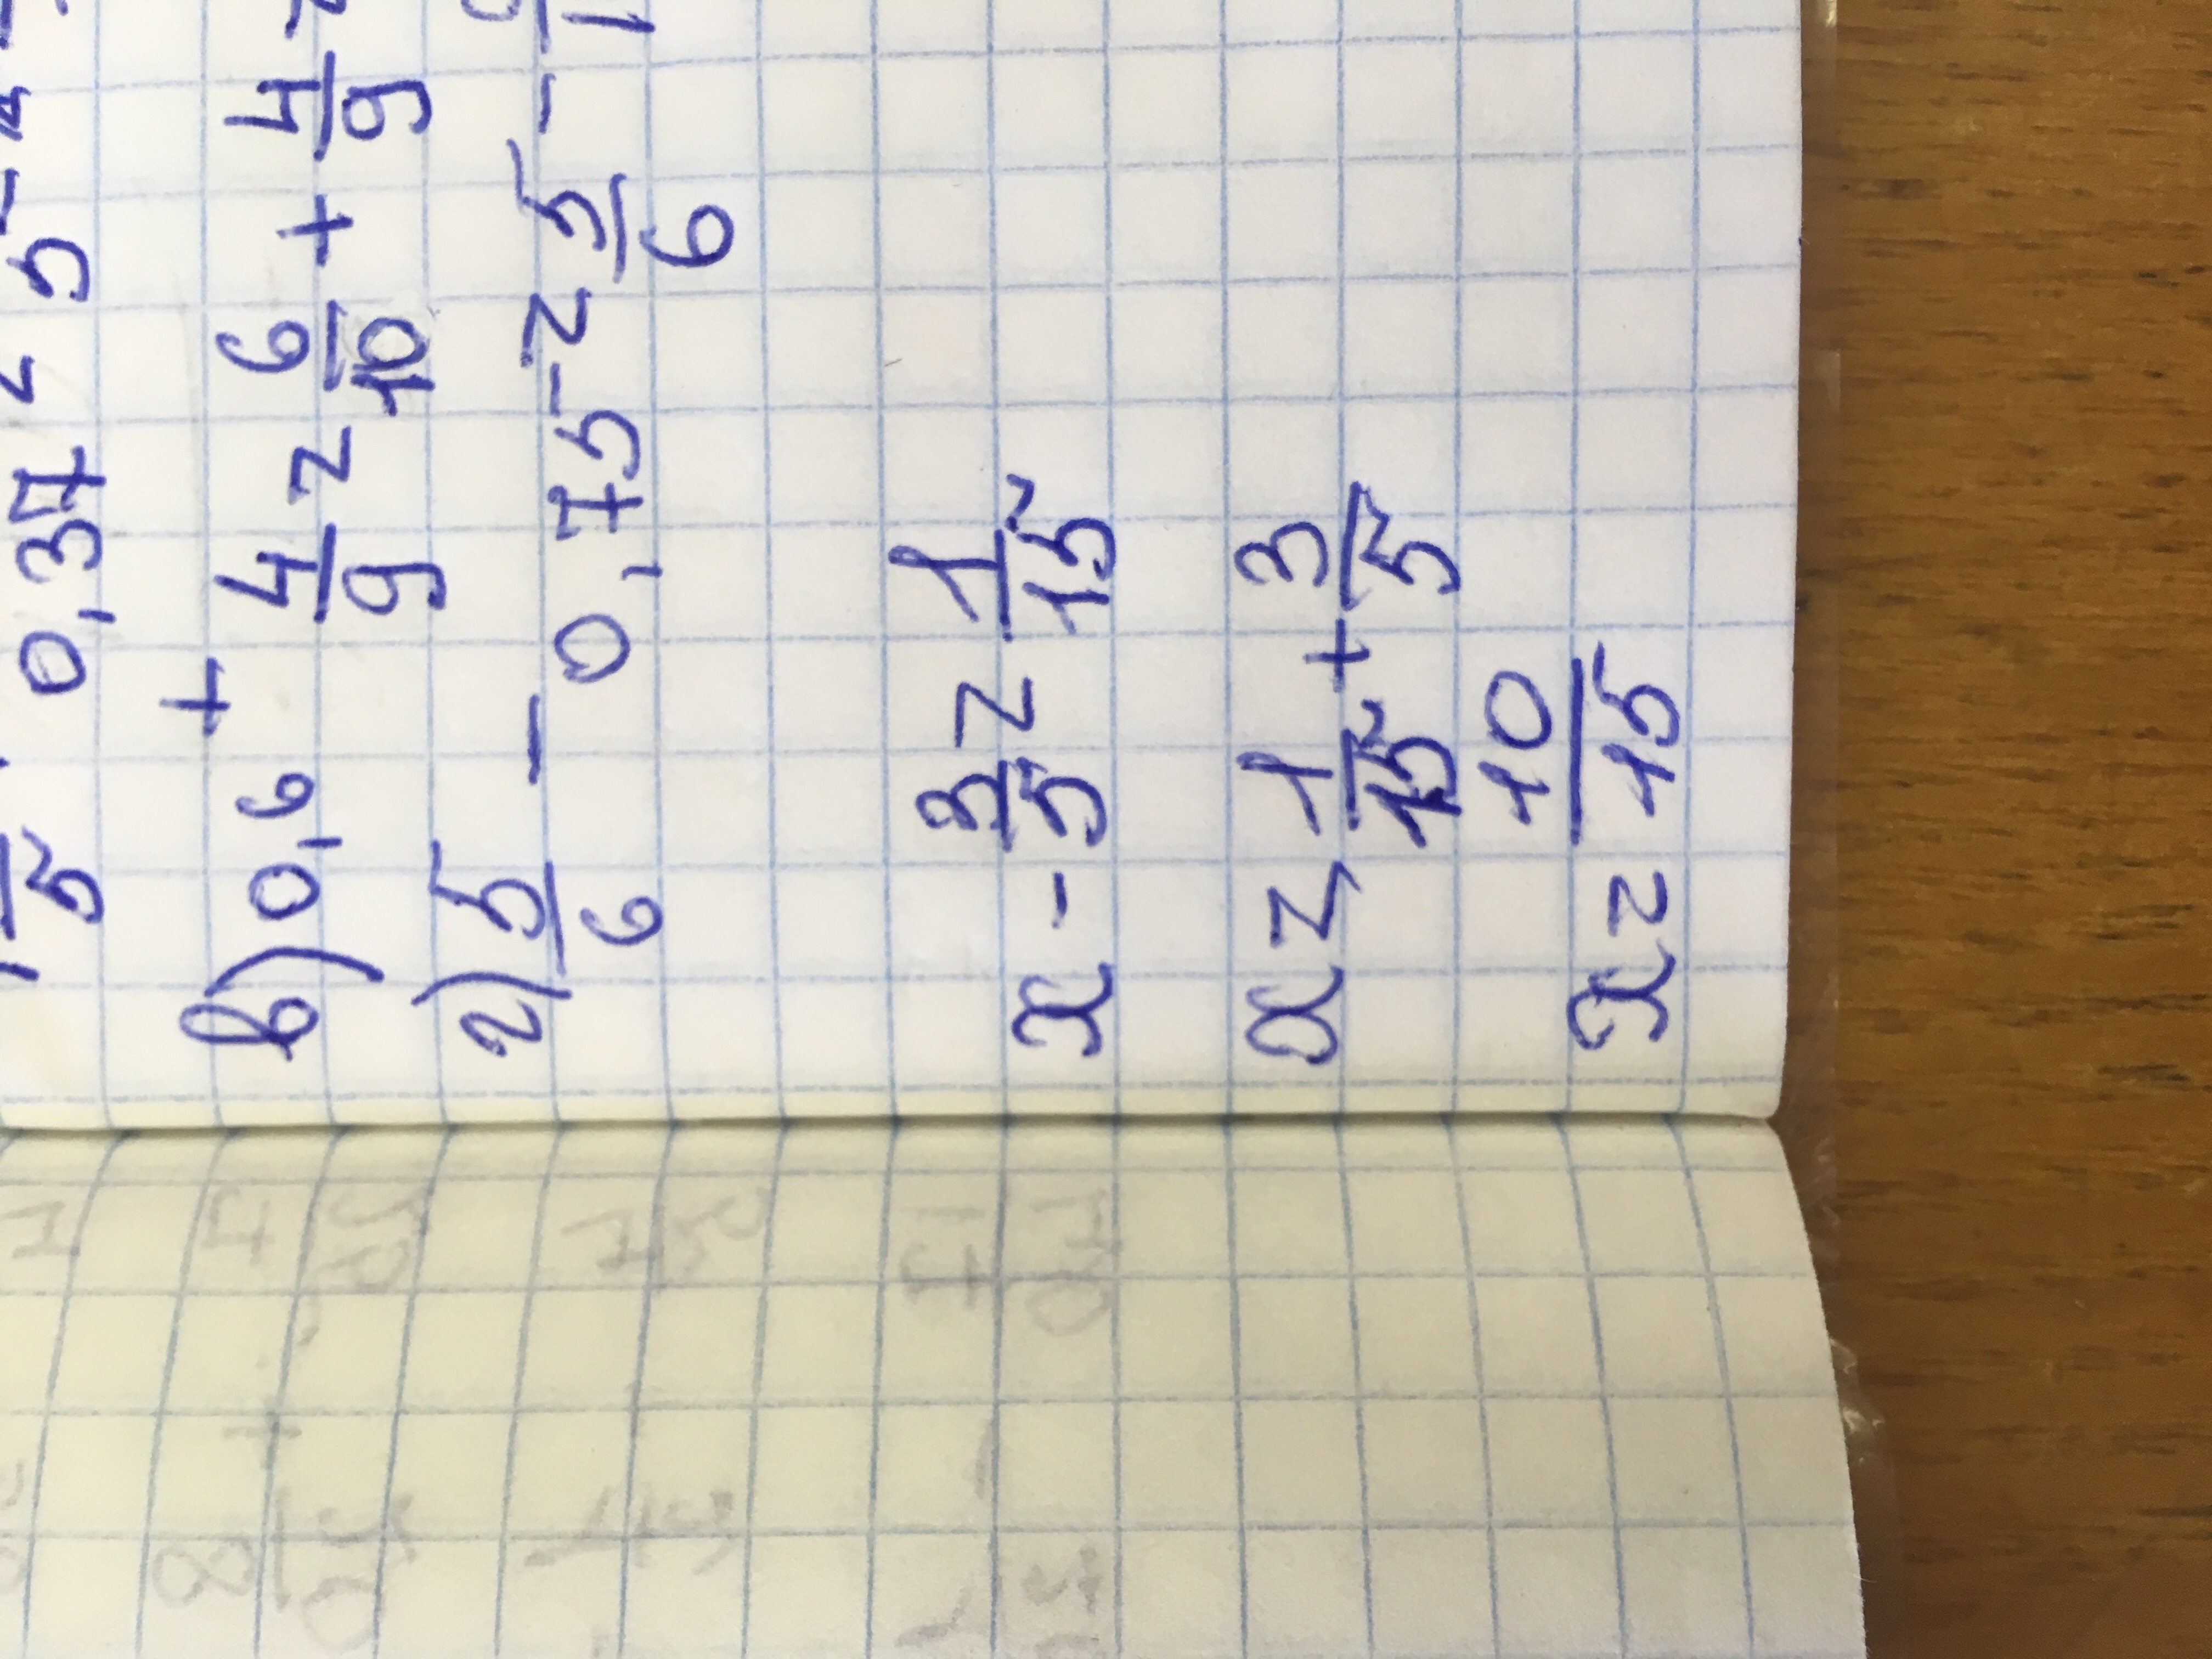 5 0,37 = 5 -
в) 0,6 + 4/9 = 6/10 + 4/9
г) 5/6 - 0,75 = 5/6 -
x - 3/5 = 1/15
x = 1/15 + 3/5
x = 10/15